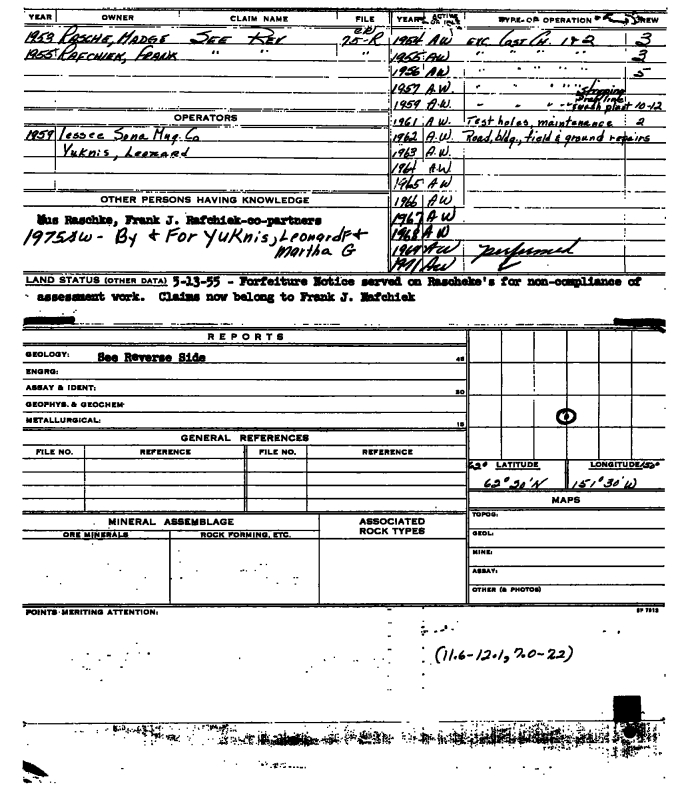 YEAR OWNER CLAIM NAME FILE YEAR ACTIVE OR IDLE TYPE OF OPERATION CREW
1953 Rasche, Madge See Rev 75-R 1954 AW exc. Lost Ch. 1&2 3
1955 Rafchiek, Frank " " " 1955 AW " " " " 3
1956 AW " " " " 5
1957 A.W. " " " " stripping
1959 A.W. " " " " plant 10-12
OPERATORS 1961 A.W. Test holes, maintenance 2
1959 Lessee Sona Mng. Co 1962 A.W. Road, bldg., field & ground repairs
Yuknis, Leonard 1963 A.W.
1964 A.W
1965 A W
OTHER PERSONS HAVING KNOWLEDGE 1966 AW
Gus Raschke, Frank J. Rafchiek-co-partners 1967 AW
1975 AW - By & For Yuknis, Leonard F & 1968 AW
Martha G 1969 AW performed
1971 AW
LAND STATUS (OTHER DATA) 5-13-55 - Forfeiture Notice served on Rascheke's for non-compliance of
assessment work. Claims now belong to Frank J. Rafchiek
REPORTS
GEOLOGY: See Reverse Side 45
ENGRG:
ASSAY & IDENT: 30
GEOPHYS. & GEOCHEM:
METALLURGICAL: 15
GENERAL REFERENCES
FILE NO. REFERENCE FILE NO. REFERENCE
62° LATITUDE LONGITUDE 152°
62°20'N 151°30'W
MAPS
MINERAL ASSEMBLAGE ASSOCIATED ROCK TYPES
ORE MINERALS ROCK FORMING, ETC.
TOPOG:
GEOL:
MINE:
ASSAY:
OTHER (& PHOTOS)
POINTS MERITING ATTENTION: SP 7912
(11.6-12.1, 7.0-22)